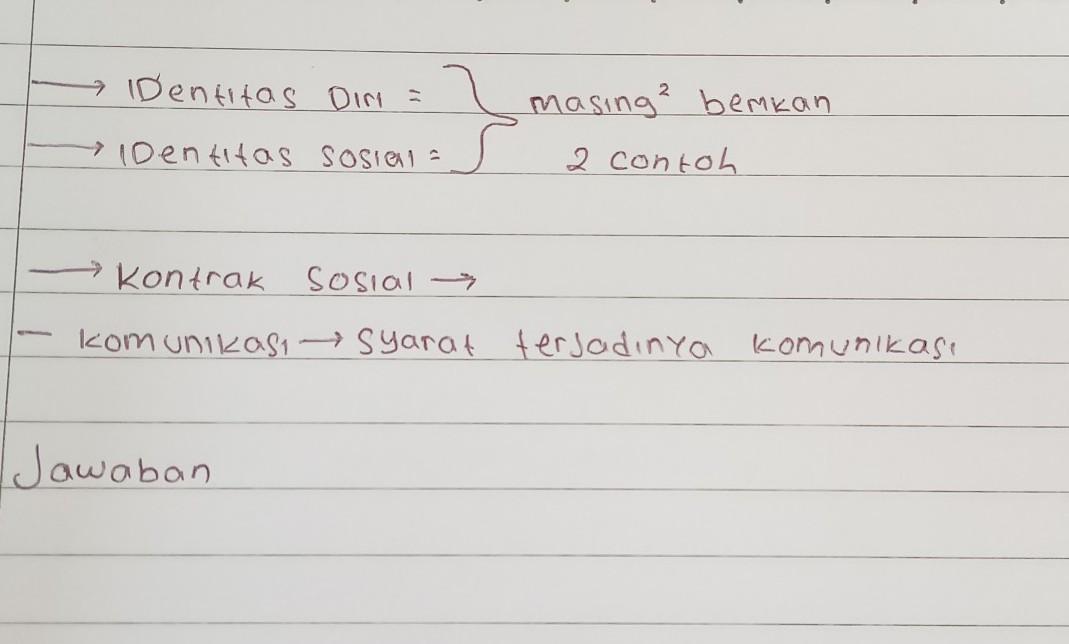 → IDentitas DIri = } masing² berikan
→ IDentitas sosial = } 2 contoh
→ Kontrak Sosial →
- komunikasi → Syarat terjadinya komunikasi
Jawaban